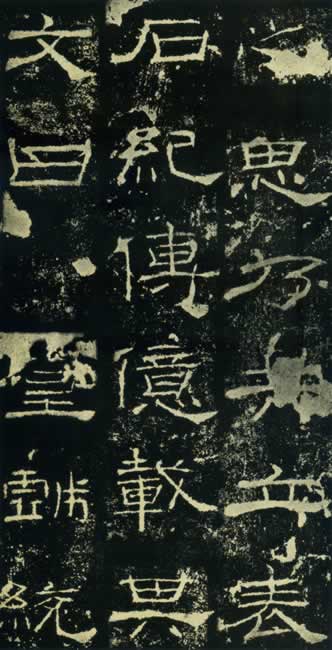 之思乃共立表
石紀傳億載其
文曰皇戲統